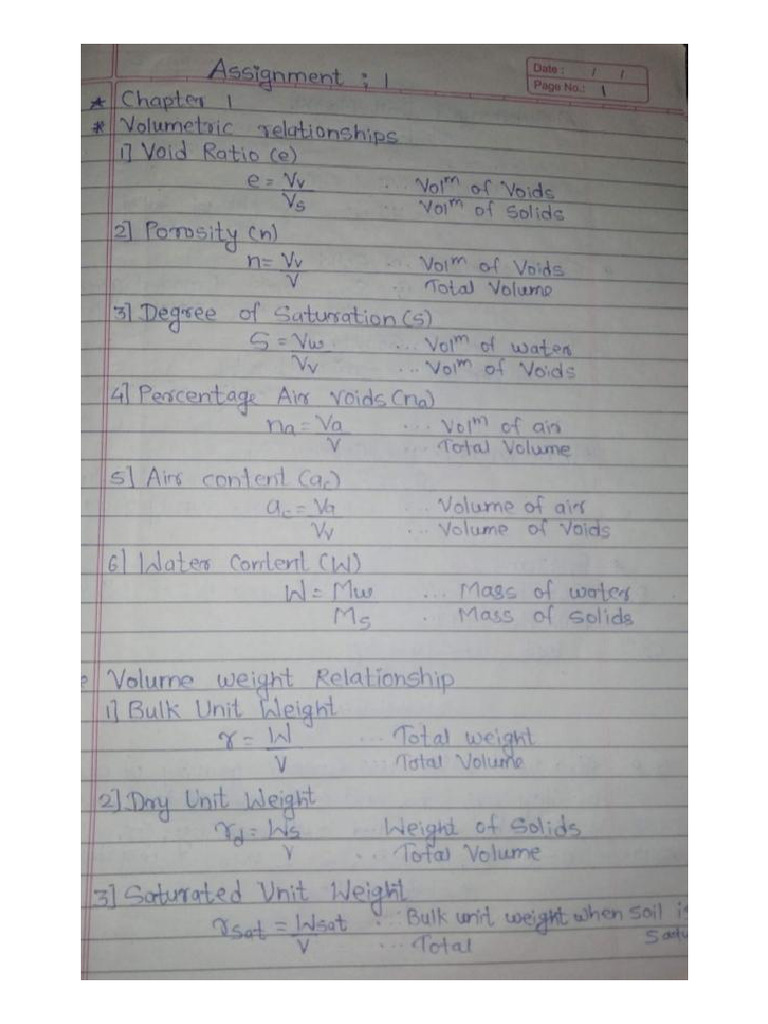 Assignment : 1
Date : / /
Page No.: 1
* Chapter 1
* Volumetric relationships
1] Void Ratio (e)
e = Vv ... Volm of Voids
Vs ... Volm of Solids
2] Porosity (n)
n = Vv ... Volm of Voids
V ... Total Volume
3] Degree of Saturation (S)
S = Vw ... Volm of water
Vv ... Volm of Voids
4] Percentage Air voids (na)
na = Va ... Volm of air
V ... Total Volume
5] Air content (ac)
ac = Va ... Volume of air
Vv ... Volume of Voids
6] Water Content (W)
W = Mw ... Mass of water
Ms . Mass of solids
Volume weight Relationship
1] Bulk Unit Weight
γ = W ... Total weight
V ... Total Volume
2] Dry Unit Weight
γd = Ws Weight of Solids
V ... Total Volume
3] Saturated Unit Weight
γsat = Wsat ... Bulk unit weight when soil is
V ... Total Satu